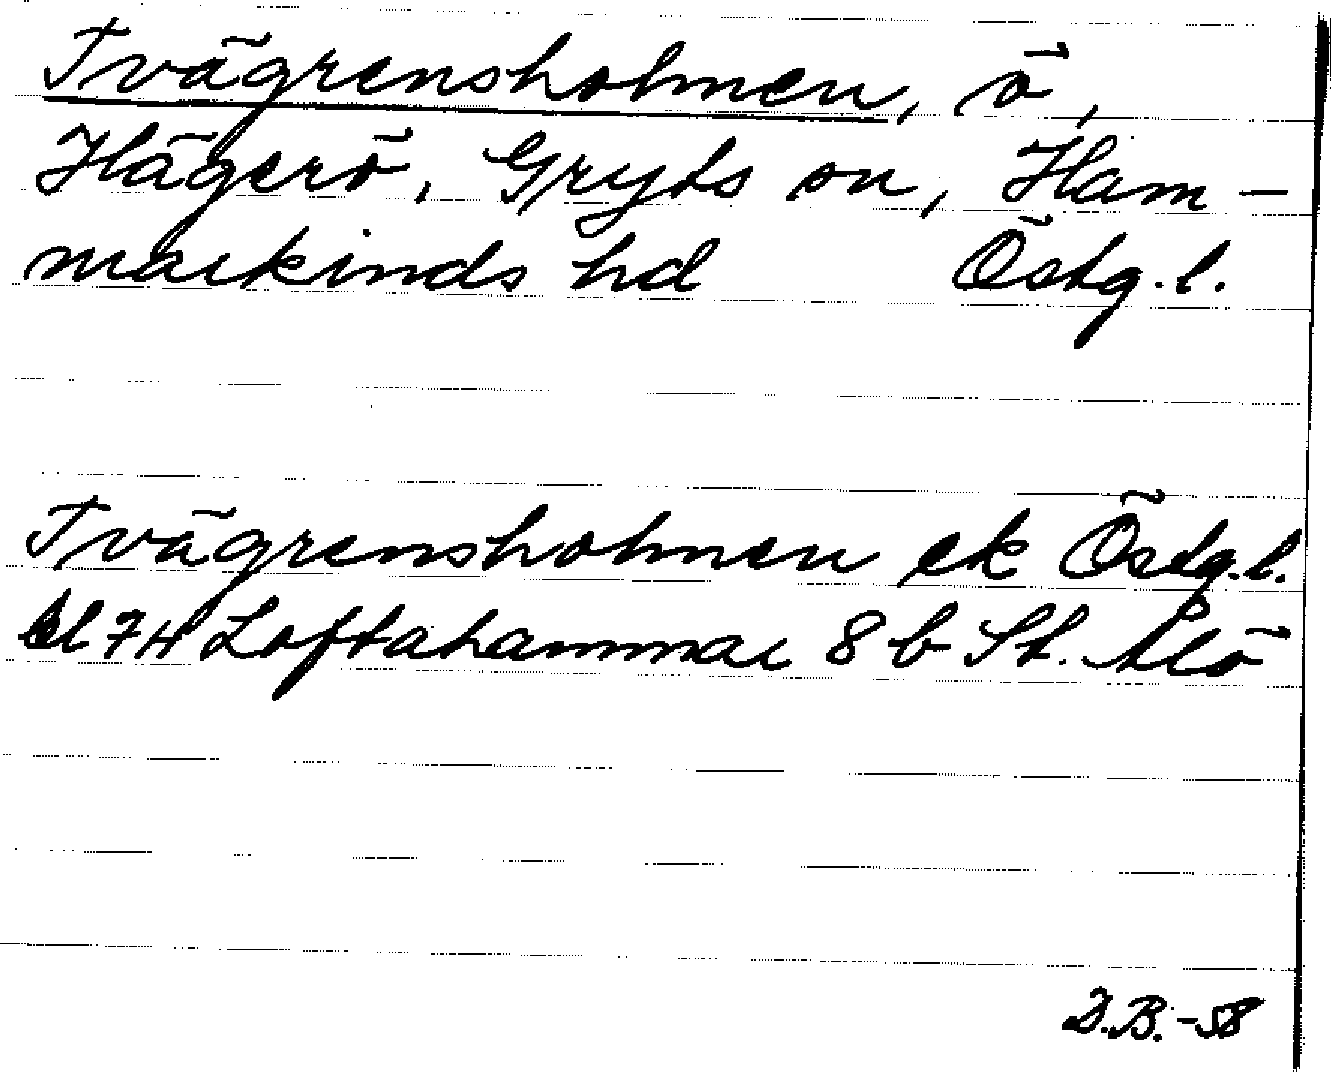 Tvägrensholmen, ö,
Hägerö, Gryts sn, Ham-
markinds hd Östg. l.
Tvägrensholmen ek Östg. l.
bl 74 Loftahammar 8 b St. Ålö
D.B. -58